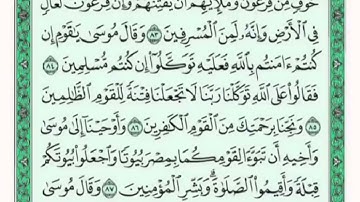 خَوْفٍ مِّن فِرْعَوْنَ وَمَلَإِيْهِمْ أَن يَفْتِنَهُمْ وَإِنَّ فِرْعَوْنَ لَعَالٍ
فِي ٱلْأَرْضِ وَإِنَّهُۥ لَمِنَ ٱلْمُسْرِفِينَ ٨٣ وَقَالَ مُوسَىٰ يَٰقَوْمِ إِن
كُنتُمْ ءَامَنتُم بِٱللَّهِ فَعَلَيْهِ تَوَكَّلُوٓا۟ إِن كُنتُم مُّسْلِمِينَ ٨٤
فَقَالُوا۟ عَلَى ٱللَّهِ تَوَكَّلْنَا رَبَّنَا لَا تَجْعَلْنَا فِتْنَةً لِّلْقَوْمِ ٱلظَّٰلِمِينَ
٨٥ وَنَجِّنَا بِرَحْمَتِكَ مِنَ ٱلْقَوْمِ ٱلْكَٰفِرِينَ ٨٦ وَأَوْحَيْنَآ إِلَىٰ مُوسَىٰ
وَأَخِيهِ أَن تَبَوَّءَا لِقَوْمِكُمَا بِمِصْرَ بُيُوتًا وَٱجْعَلُوا۟ بُيُوتَكُمْ
قِبْلَةً وَأَقِيمُوا۟ ٱلصَّلَوٰةَ ۗ وَبَشِّرِ ٱلْمُؤْمِنِينَ ٨٧ وَقَالَ مُوسَىٰ